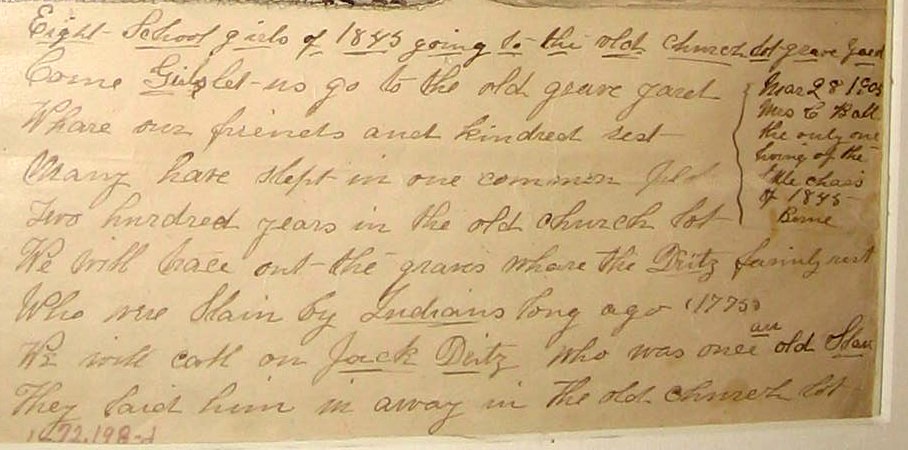 Eight School girls of 1845 going to the old church lot grave yard
Come Girls let us go to the old grave yard
Whare our friends and kindred rest
Many have slept in one common
Two hundred years in the old church lot
We will trace out the graves whare the Deitz family rest
Who were Slain by Indians long ago (1775)
We will call on Jack Deitz who was once an old Slav
They laid him in away in the old church lot
Mar 28 1905
Mrs C Ball
the only one
living of the
of 1845
Berne